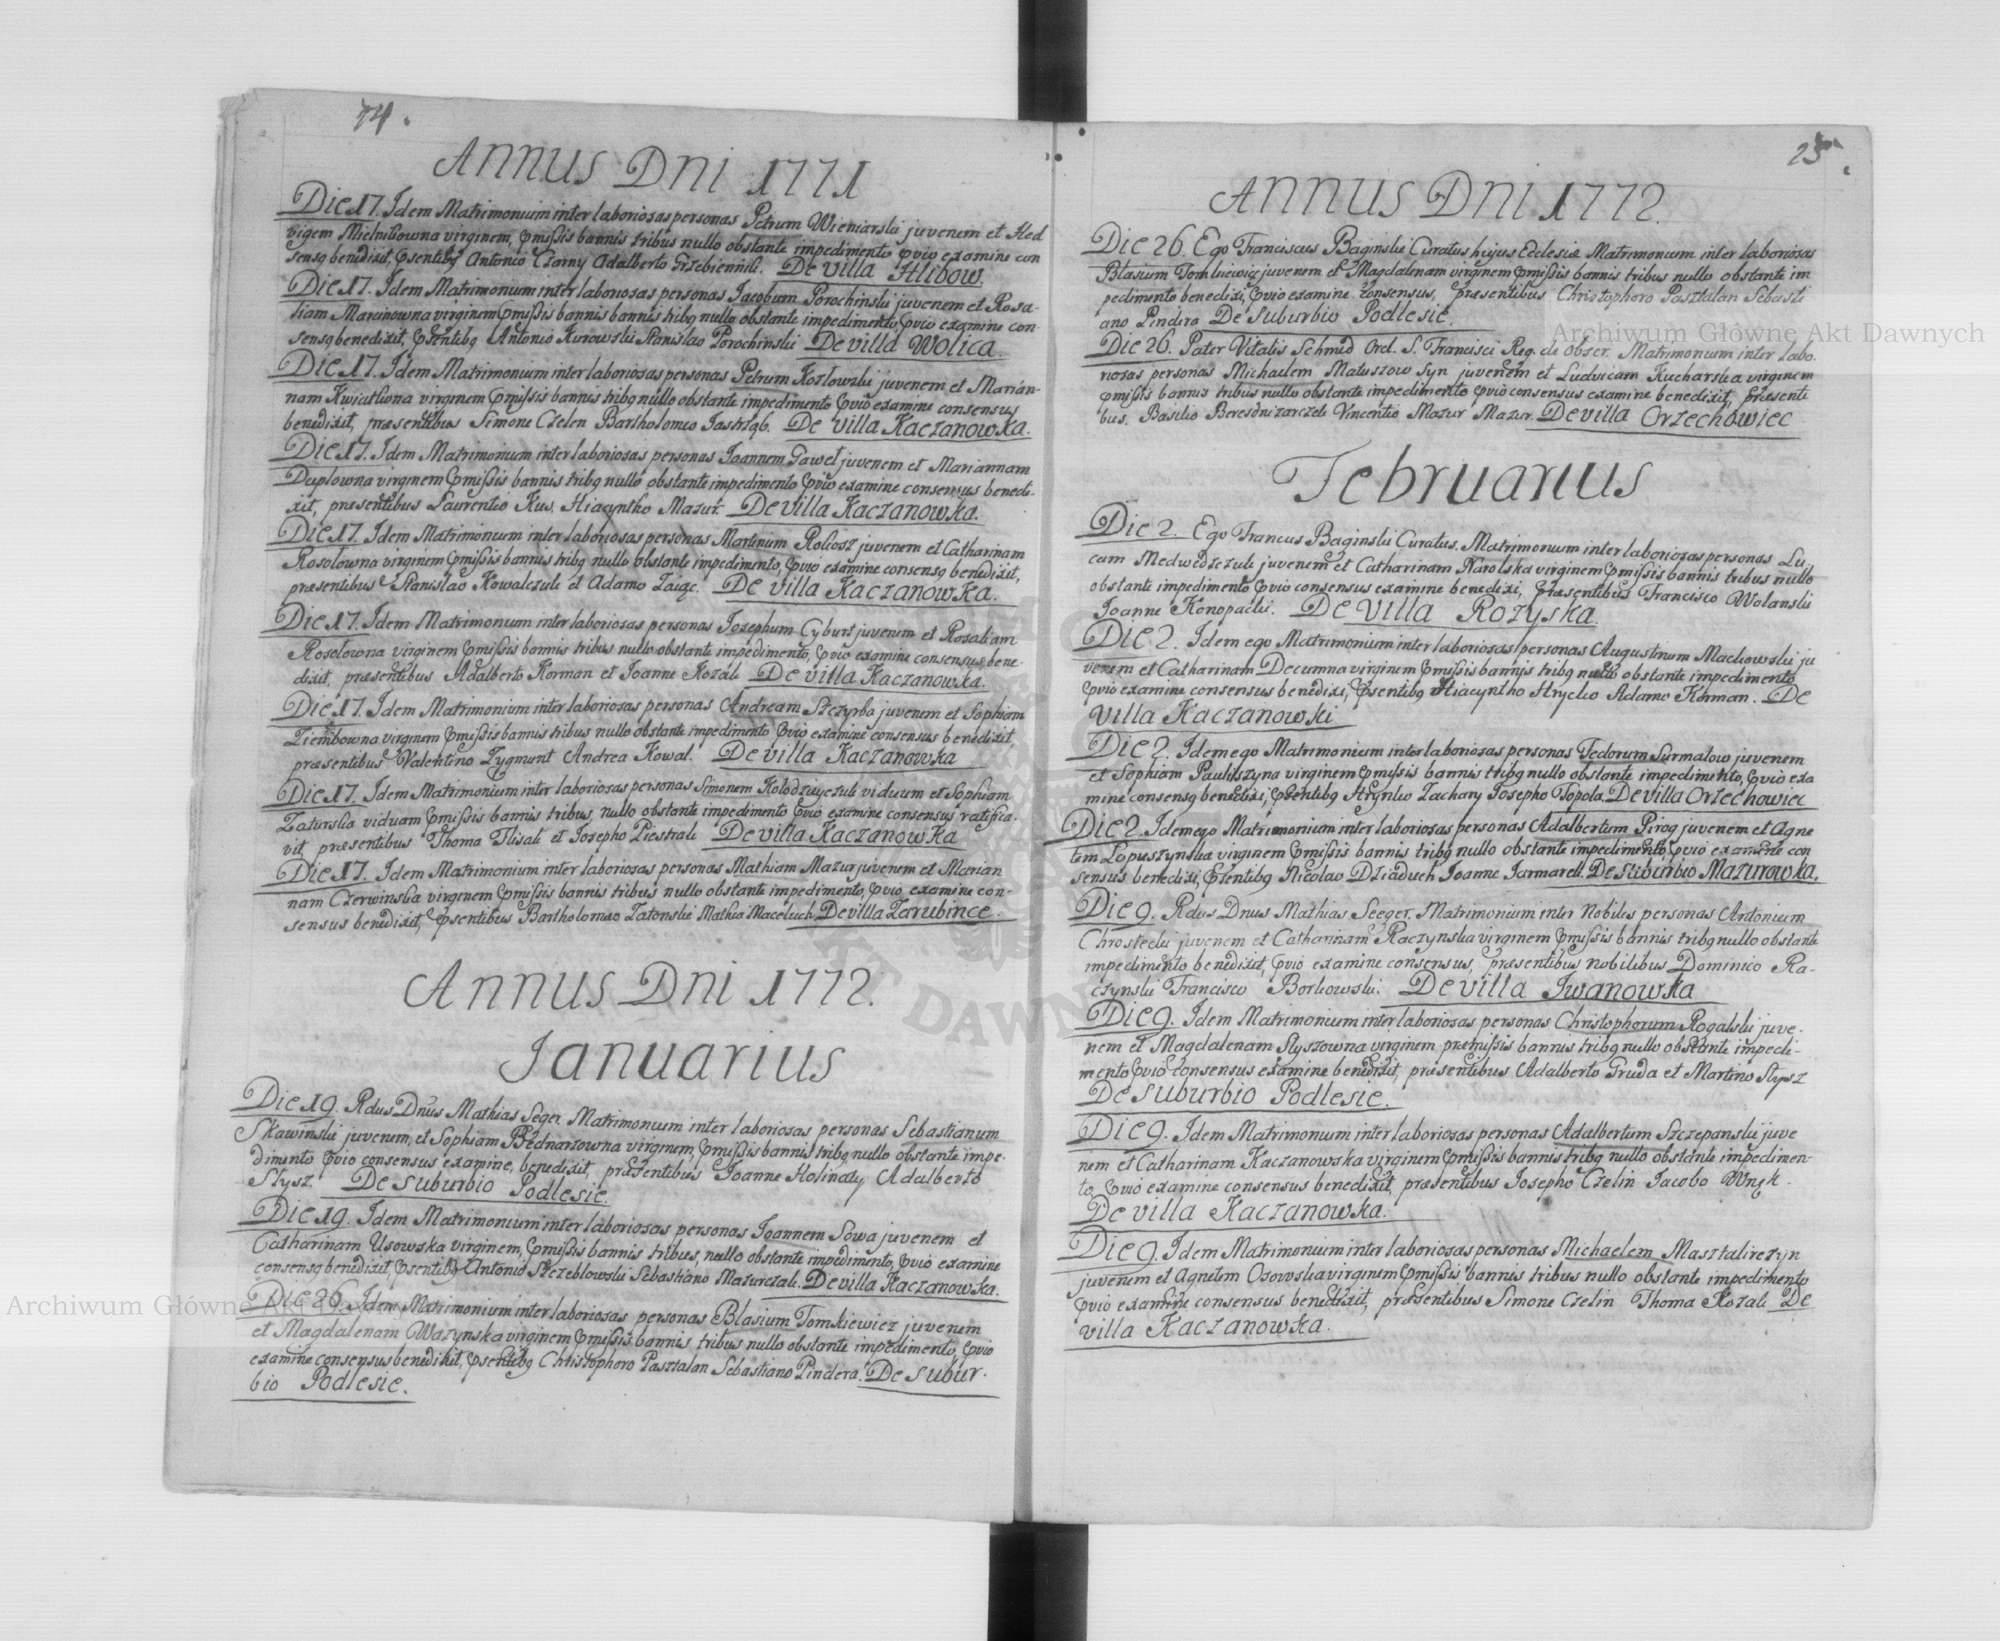 74.
Annus Dni 1771
Die 17. Idem Matrimonium inter laboriosas personas Petrum Wieniarski juvenem et Hed
vigem Mielnikowna virginem, præmissis bannis tribus nullo obstante impedimento prævio examine con
sensq benedixit, præsentibq Antonio Czarny Adalberto Grzebieniski. De villa Hlibow.
Die 17. Idem Matrimonium inter laboriosas personas Jacobum Porochinski juvenem et Rosa-
liam Marcinowna virginem præmissis bannis bannis tribq nullo obstante impedimento, prævio examine con-
sensq benedixit, præsentibq Antonio Kurowski Stanislao Porochinski De villa Wolica.
Die 17. Idem Matrimonium inter laboriosas personas Petrum Kozlowski juvenem et Marian-
nam Kwiatkowna virginem præmissis bannis tribq nullo obstante impedimento prævio examine consensus
benedixit, præsentibus Simone Czelen Bartholomeo Jastrząb. De villa Kaczanowka.
Die 17. Idem Matrimonium inter laboriosas personas Joannem Gaweł juvenem et Mariannam
Duplowna virginem præmissis bannis tribq nullo obstante impedimento prævio examine consensus benedi-
xit, præsentibus Laurentio Kus, Hiacyntho Mazur. De villa Kaczanowka.
Die 17. Idem Matrimonium inter laboriosas personas Martinum Rokosz juvenem et Catharinam
Rosolowna virginem præmissis bannis tribq nullo obstante impedimento, prævio examine consensq benedixit,
præsentibus Stanislao Kowalczuk et Adamo Zaiąc. De villa Kaczanowka.
Die 17. Idem Matrimonium inter laboriosas personas Josephum Cyburt juvenem et Rosaliam
Rosołowna virginem præmissis bannis tribus nullo obstante impedimento, prævio examine consensus, bene-
dixit, præsentibus Adalberto Korman et Joanne Kozak De villa Kaczanowka.
Die 17. Idem Matrimonium inter laboriosas personas Andream Szczyrba juvenem et Sophiam
Ziembowna virginem præmissis bannis tribus nullo obstante impedimento prævio examine consensus benedixit,
præsentibus Valentino Zygmunt Andrea Kowal. De villa Kaczanowka
Die 17. Idem Matrimonium inter laboriosas personas Simonem Kolodziwczuk viduum et Sophiam
Zaturska viduam præmissis bannis tribus, nullo obstante impedimento prævio examine consensus ratifica-
vit præsentibus Thoma Flisak et Josepho Piestrak De villa Kaczanowka
Die 17. Idem Matrimonium inter laboriosas personas Mathiam Mazur juvenem et Marian
nam Czerwinska virginem præmissis bannis tribus nullo obstante impedimento, prævio examine con-
sensus benedixit, præsentibus Bartholomæo Zatonski Mathia Maceluch, De villa Zarubince.
Annus Dni 1772.
Januarius
Die 19. Rdus Dnus Mathias Seger. Matrimonium inter laboriosas personas Sebastianum
Skawinski juvenem, et Sophiam Bednarzowna virginem, præmissis bannis tribq nullo obstante impe-
dimento prævio consensus examine, benedixit, præsentibus Joanne Holinaty Adalberto
Słysz. De suburbio Podlesie.
Die 19. Idem Matrimonium inter laboriosas personas Joannem Sowa juvenem et
Catharinam Usowska virginem, præmissis bannis tribus, nullo obstante impedimento, prævio examine
consensq benedixit, præsentibq Antonio Szczeblowski Sebastiano Mazurczak. De villa Kaczanowka.
Die 26. Idem Matrimonium inter laboriosas personas Blasium Tomkiewicz juvenem
et Magdalenam Wazynska virginem præmissis bannis tribus nullo obstante impedimento, prævio
examine consensus benedixit, præsentibq Christophoro Pasztalan Sebastiano Pindera. De subur-
bio Podlesie.
25.
Annus Dni 1772.
Die 26. Ego Franciscus Baginski Curatus hujus Ecclesiæ Matrimonium inter laboriosas
Blasium Tomkiewicz juvenem et Magdalenam virginem præmissis bannis tribus nullo obstante im
pedimento benedixi, prævio examine consensus, præsentibus Christophoro Pasztalan Sebasti
ano Pindera De suburbio Podlesie.
Die 26. Pater Vitalis Schmid Ord. S. Francisci Reg. de Obser. Matrimonium inter labo-
riosas personas Michaelem Matuszow Syn juvenem et Ludvicam Kucharska virginem
præmissis bannis tribus nullo obstante impedimento prævio consensus examine benedixit, præsenti
bus. Basilio Beresdnizarczek Vincentio Mazur Mazur. De villa Orzechowiec
Februarius
Die 2. Ego Francus Baginski Curatus. Matrimonium inter laboriosas personas Lu-
cam Medwedzczuk juvenem et Catharinam Narolska virginem præmissis bannis tribus nullo
obstante impedimento prævio consensus examine benedixi, præsentibus Francisco Wolanski
Joanne Konopacki. De villa Rozyska.
Die 2. Idem ego Matrimonium inter laboriosas personas Augustinum Mackowski ju
venem et Catharinam Decumna virginem præmissis bannis tribq nullo obstante impedimento
prævio examine consensus benedixi, præsentibq Hiacyntho Hrycko Adamo Korman. De
villa Kaczanowki
Die 2. Idem ego Matrimonium inter laboriosas personas Fedorum Surmatow juvenem
et Sophiam Pauliszyna virginem præmissis bannis tribq nullo obstante impedimento, prævio exa
mine consensq benedixi, præsentibq Hrynko Zachary Josepho Topola. De villa Orzechowiec
Die 2. Idem ego Matrimonium inter laboriosas personas Adalbertum Pirog juvenem et Agne
tem Lopuszynska virginem præmissis bannis tribq nullo obstante impedimento, prævio examine con
sensus benedixi, præsentibq Nicolao Dziaduch Joanne Jarmarek. De suburbio Mazurowka.
Die 9. Rdus Dnus Mathias Seeger. Matrimonium inter Nobiles personas Antonium
Chrostecki juvenem et Catharinam Raczynska virginem præmissis bannis tribq nullo obstante
impedimento benedixit, prævio examine consensus, præsentibus nobilibus Dominico Ra-
czynski Francisco Borkowski. De villa Iwanowka
Die 9. Idem Matrimonium inter laboriosas personas Christophorum Rogalski juve-
nem et Magdalenam Słyszowna virginem præmissis bannis tribq nullo obstante impedi-
mento prævio consensus examine benedixit, præsentibus Adalberto Gruda et Martino Słysz
De suburbio Podlesie.
Die 9. Idem Matrimonium inter laboriosas personas Adalbertum Szczepanski juve
nem et Catharinam Kaczanowska virginem præmissis bannis tribq nullo obstante impedimen-
to, prævio examine consensus benedixit, præsentibus Josepho Czelin Jacobo Wnęk.
De villa Kaczanowka.
Die 9. Idem Matrimonium inter laboriosas personas Michaelem Masztalirczyn
juvenem et Agnetem Osowska virginem præmissis bannis tribus nullo obstante impedimento
prævio examine consensus benedixit, præsentibus Simone Czelin Thoma Kozak De
villa Kaczanowka.
Archiwum Główne Akt Dawnych
Archiwum Główne Akt Dawnych